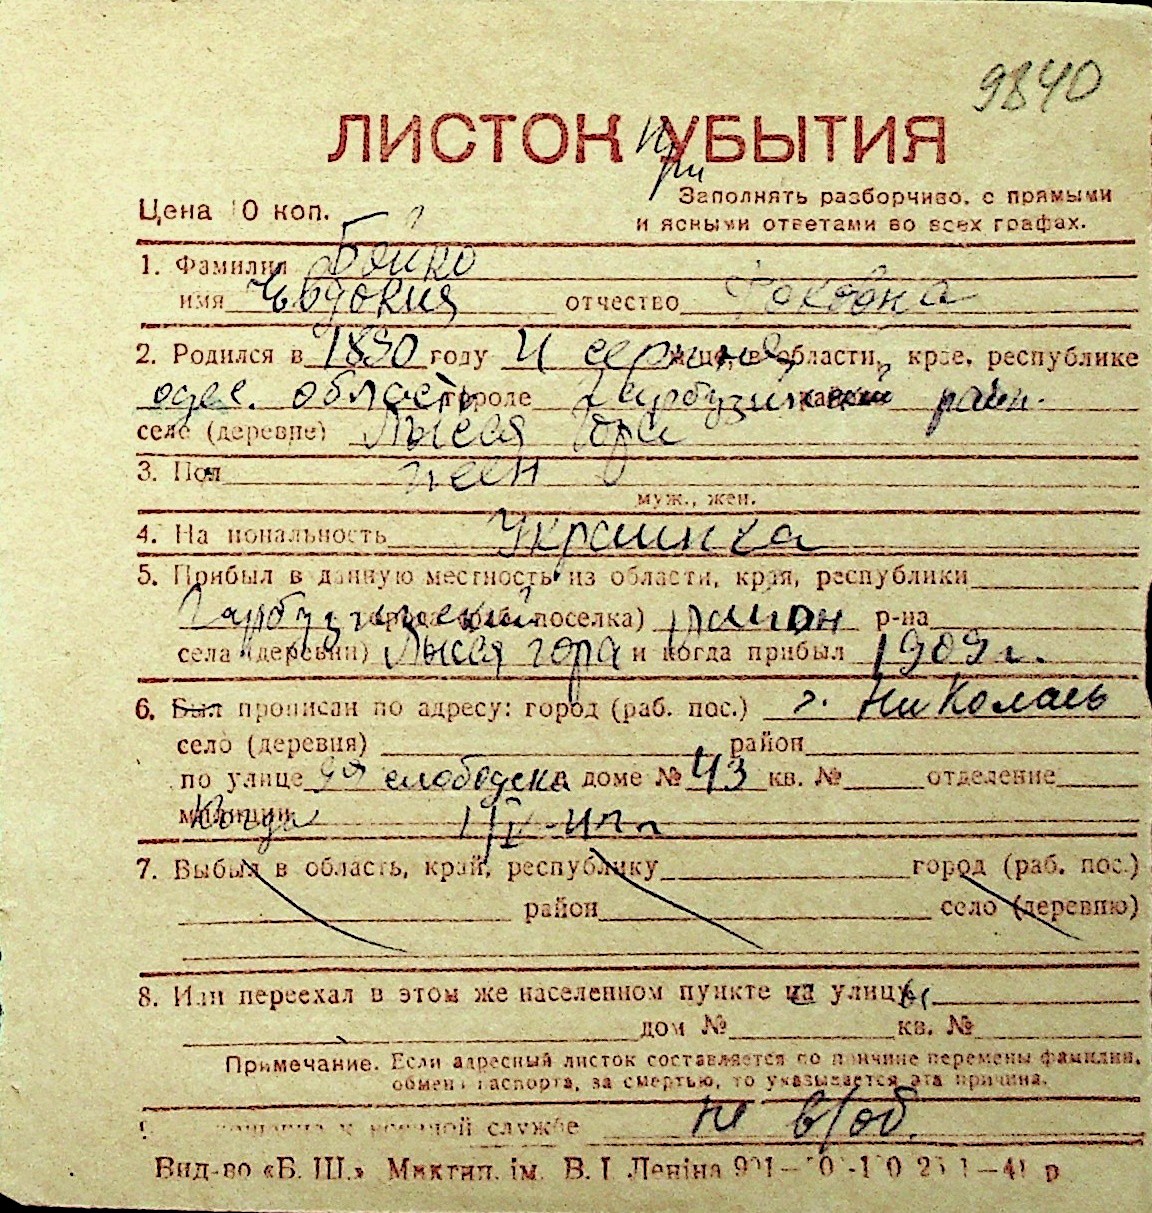 9840
ЛИСТОК при УБЫТИЯ
Цена 10 коп.
Заполнять разборчиво, с прямыми
и ясными ответами во всех графах.
1. Фамилия Бойко
имя Евдокия отчество Фоковна
2. Родился в 1890 году месяце, в области, крае, республике
одес. область городе район.
село (деревне) Лысая Гора
3. Пол жен
муж., жен.
4. Национальность Украинка
5. Прибыл в данную местность из области, края, республики
города (раб. поселка) район р-на
села (деревни) Лысая гора и когда прибыл 1909 г.
6. Был прописан по адресу: город (раб. пос.) г. Николаев
село (деревня) район
по улице 9я слободска доме № 43 кв. № отделение
милиции Когда
7. Выбыл в область, край, республику город (раб. пос.)
район село (деревню)
8. Или переехал в этом же населенном пункте на улицу
дом № кв. №
Примечание. Если адресный листок составляется по причине перемены фамилии,
обмена паспорта, за смертью, то указывается эта причина.
к военной службе не в/об.
Вид-во «Б. Ш.» Миктип. ім. В. І. Леніна